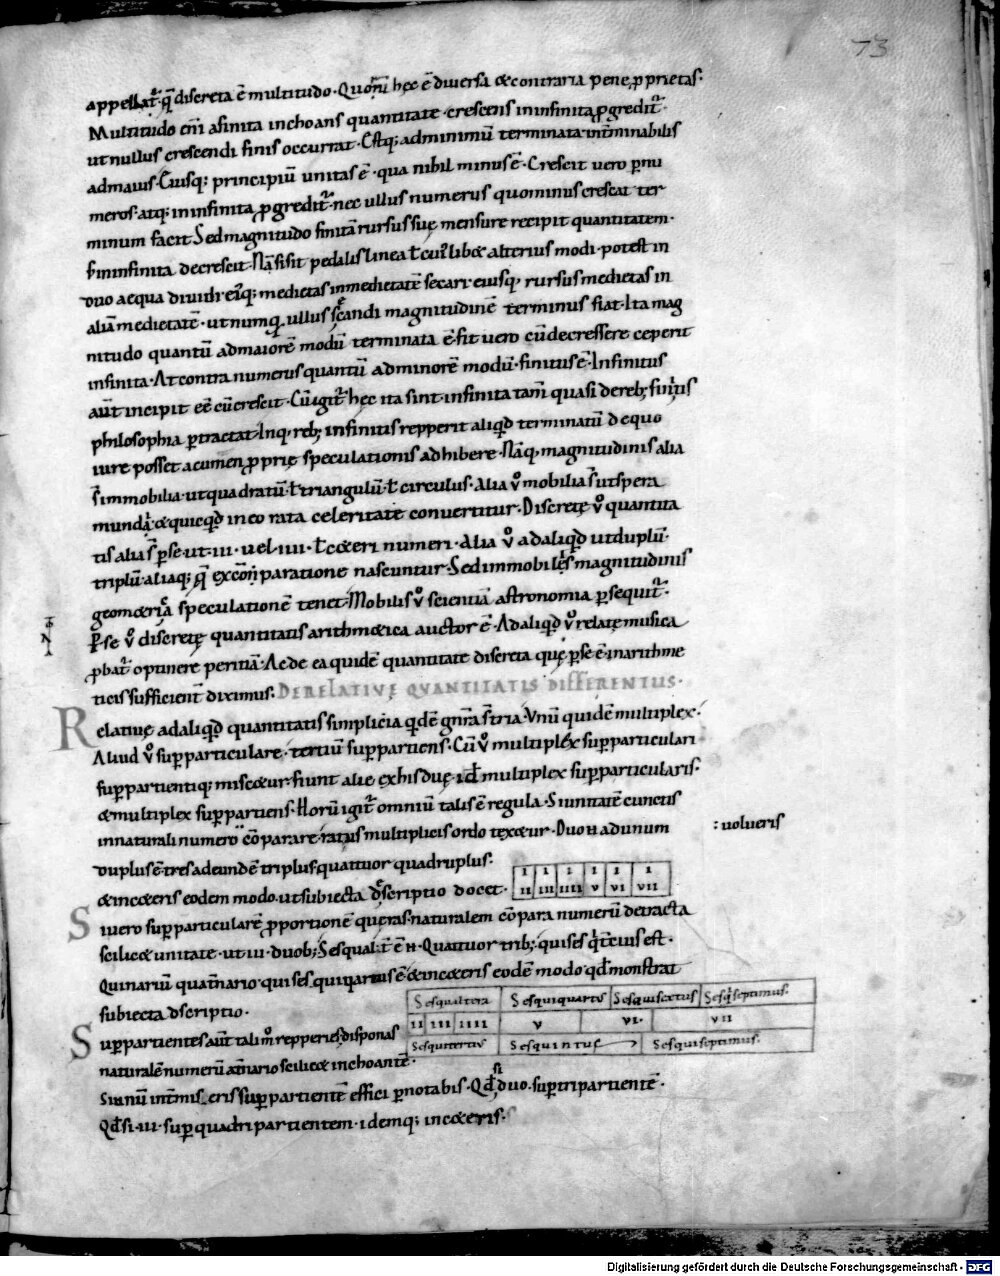 73
appellat̄ q̄ discreta ē multitudo· Quoni̅ hęc ē diuersa & contraria pene ꝓprietas·
Multitudo eni̅ a finita inchoans quantitate crescens in infinita ꝓgredit̄·
ut nullus crescendi finis occurrat· Estq; ad minimū terminata int̄minabilis
ad maius· Eiusq; principiū unitas ē· qua nihil minus ē· Crescit uero ꝑ nu
meros· atq; in infinita ꝓgredit̄· nec ullus numerus quominus crescat ter
minum facit Sed magnitudo finitā rursus suę mensurę recipit quantitatem·
s; in infinita decrescit· Nā si sit pedalis linea ł cuiuslib& alterius modi· potest in
duo aequa diuidi ei'q; medietas in medietatē secari· eiusq; rursus medietas in
aliā medietatē· ut numq̄ ullus secandi magnitudinē terminus fiat· Ita mag
nitudo quantū ad maiorē modū terminata ē· fit uero cū decressere ceperit
infinita· At contra numerus quantū ad minorē modū· finitus ē· Infinitus
aūt incipit eē cū crescit· Cū igit̄ hęc ita sint infinita tam̄ quasi de reb; finitis
philosophia ꝑtractat· Inq; reb; infinitis repperit aliqd̄ terminatū de quo
iure posset acumen ꝓprię speculationis adhibere· Nāq; magnitudinis alia
s̄ immobilia· ut quadratū· ł triangulū· ł circulus· Alia ů mobilia s̄ ut spera
mundi· & quicqd̄ in eo rata celeritate conuertitur· Discretę ů quantita
tis alia s̄ ꝑ se· ut ·iii· uel ·iiii· ł c&eri numeri· Alia ů ad aliqd̄ ut duplū·
triplū· aliaq; q̄ ex cōparatione nascuntur· Sed immobilis magnitudinis
geom&ria speculationē tenet· Mobilis ů scientiā astronomia ꝑsequit̄·
ꝑ se ů discretę quantitatis arithm&ica auctor ē· Ad aliqd̄ ů relatę musica
ꝓbat̄ optinere peritiā· Ac de ea quidē quantitate discreta quę ꝑ se ē· in arithme
ticis sufficient̄ diximus· DE RELATIVĘ QVANTITATIS DIFFERENTIIS·
Relatiuę ad aliqd̄ quantitatis simplicia qdē gn̄ra s̄ tria· Vnū quidē multiplex·
Aliud ů suꝑparticulare· tertiū suꝑpartiens· Cū ů multiplex suꝑparticulari
suꝑpartientiq; misc&ur· fiunt alie ex his duę· id ł multiplex suꝑparticularis·
& multiplex suꝑpartiens· Horū igit̄ omniū talis ē regula· Si unitatē cunctis
in naturali numero cōparare· ratus multiplicis ordo tex&ur· Duo ħ ad unum
: uolueris
duplus ē· tres ad eundē triplus· quattuor quadruplus·
& in c&eris eodem modo· ut subiecta descriptio doc&·
I I I I I I
II III IIII V VI VII
Si uero suꝑparticularē ꝓportionē quęras· naturalem cōpara numerū detracta
scilic& unitate· ut ·iii· duob; Sesqualit̄ ē ħ· Quattuor trib; qui sesq̄tcius est·
Quinariū quat̄nario· qui sesquiqartus ē· & in c&eris eodē modo· qd̄ monstrat
subiecta dscriptio·
Sesqualtera Sesquiquartus Sesquisextus Sesq̄septimus·
II III IIII V VI· VII
Sesqutertius Sesquintus Sesquiseptimus·
Suꝑpartientes aūt tali m̊ repperies· disponas
naturalē numerū a t̄nario scilic& inchoantē·
Si unū int̄mis eris suꝑpartientē effici ꝑnotabis· Qd̄ si duo· suꝑtripartientē·
Qd̄ si ·iii· suꝑquadripartientem· idemq; in c&eris·
Digitalisierung gefördert durch die Deutsche Forschungsgemeinschaft - DFG